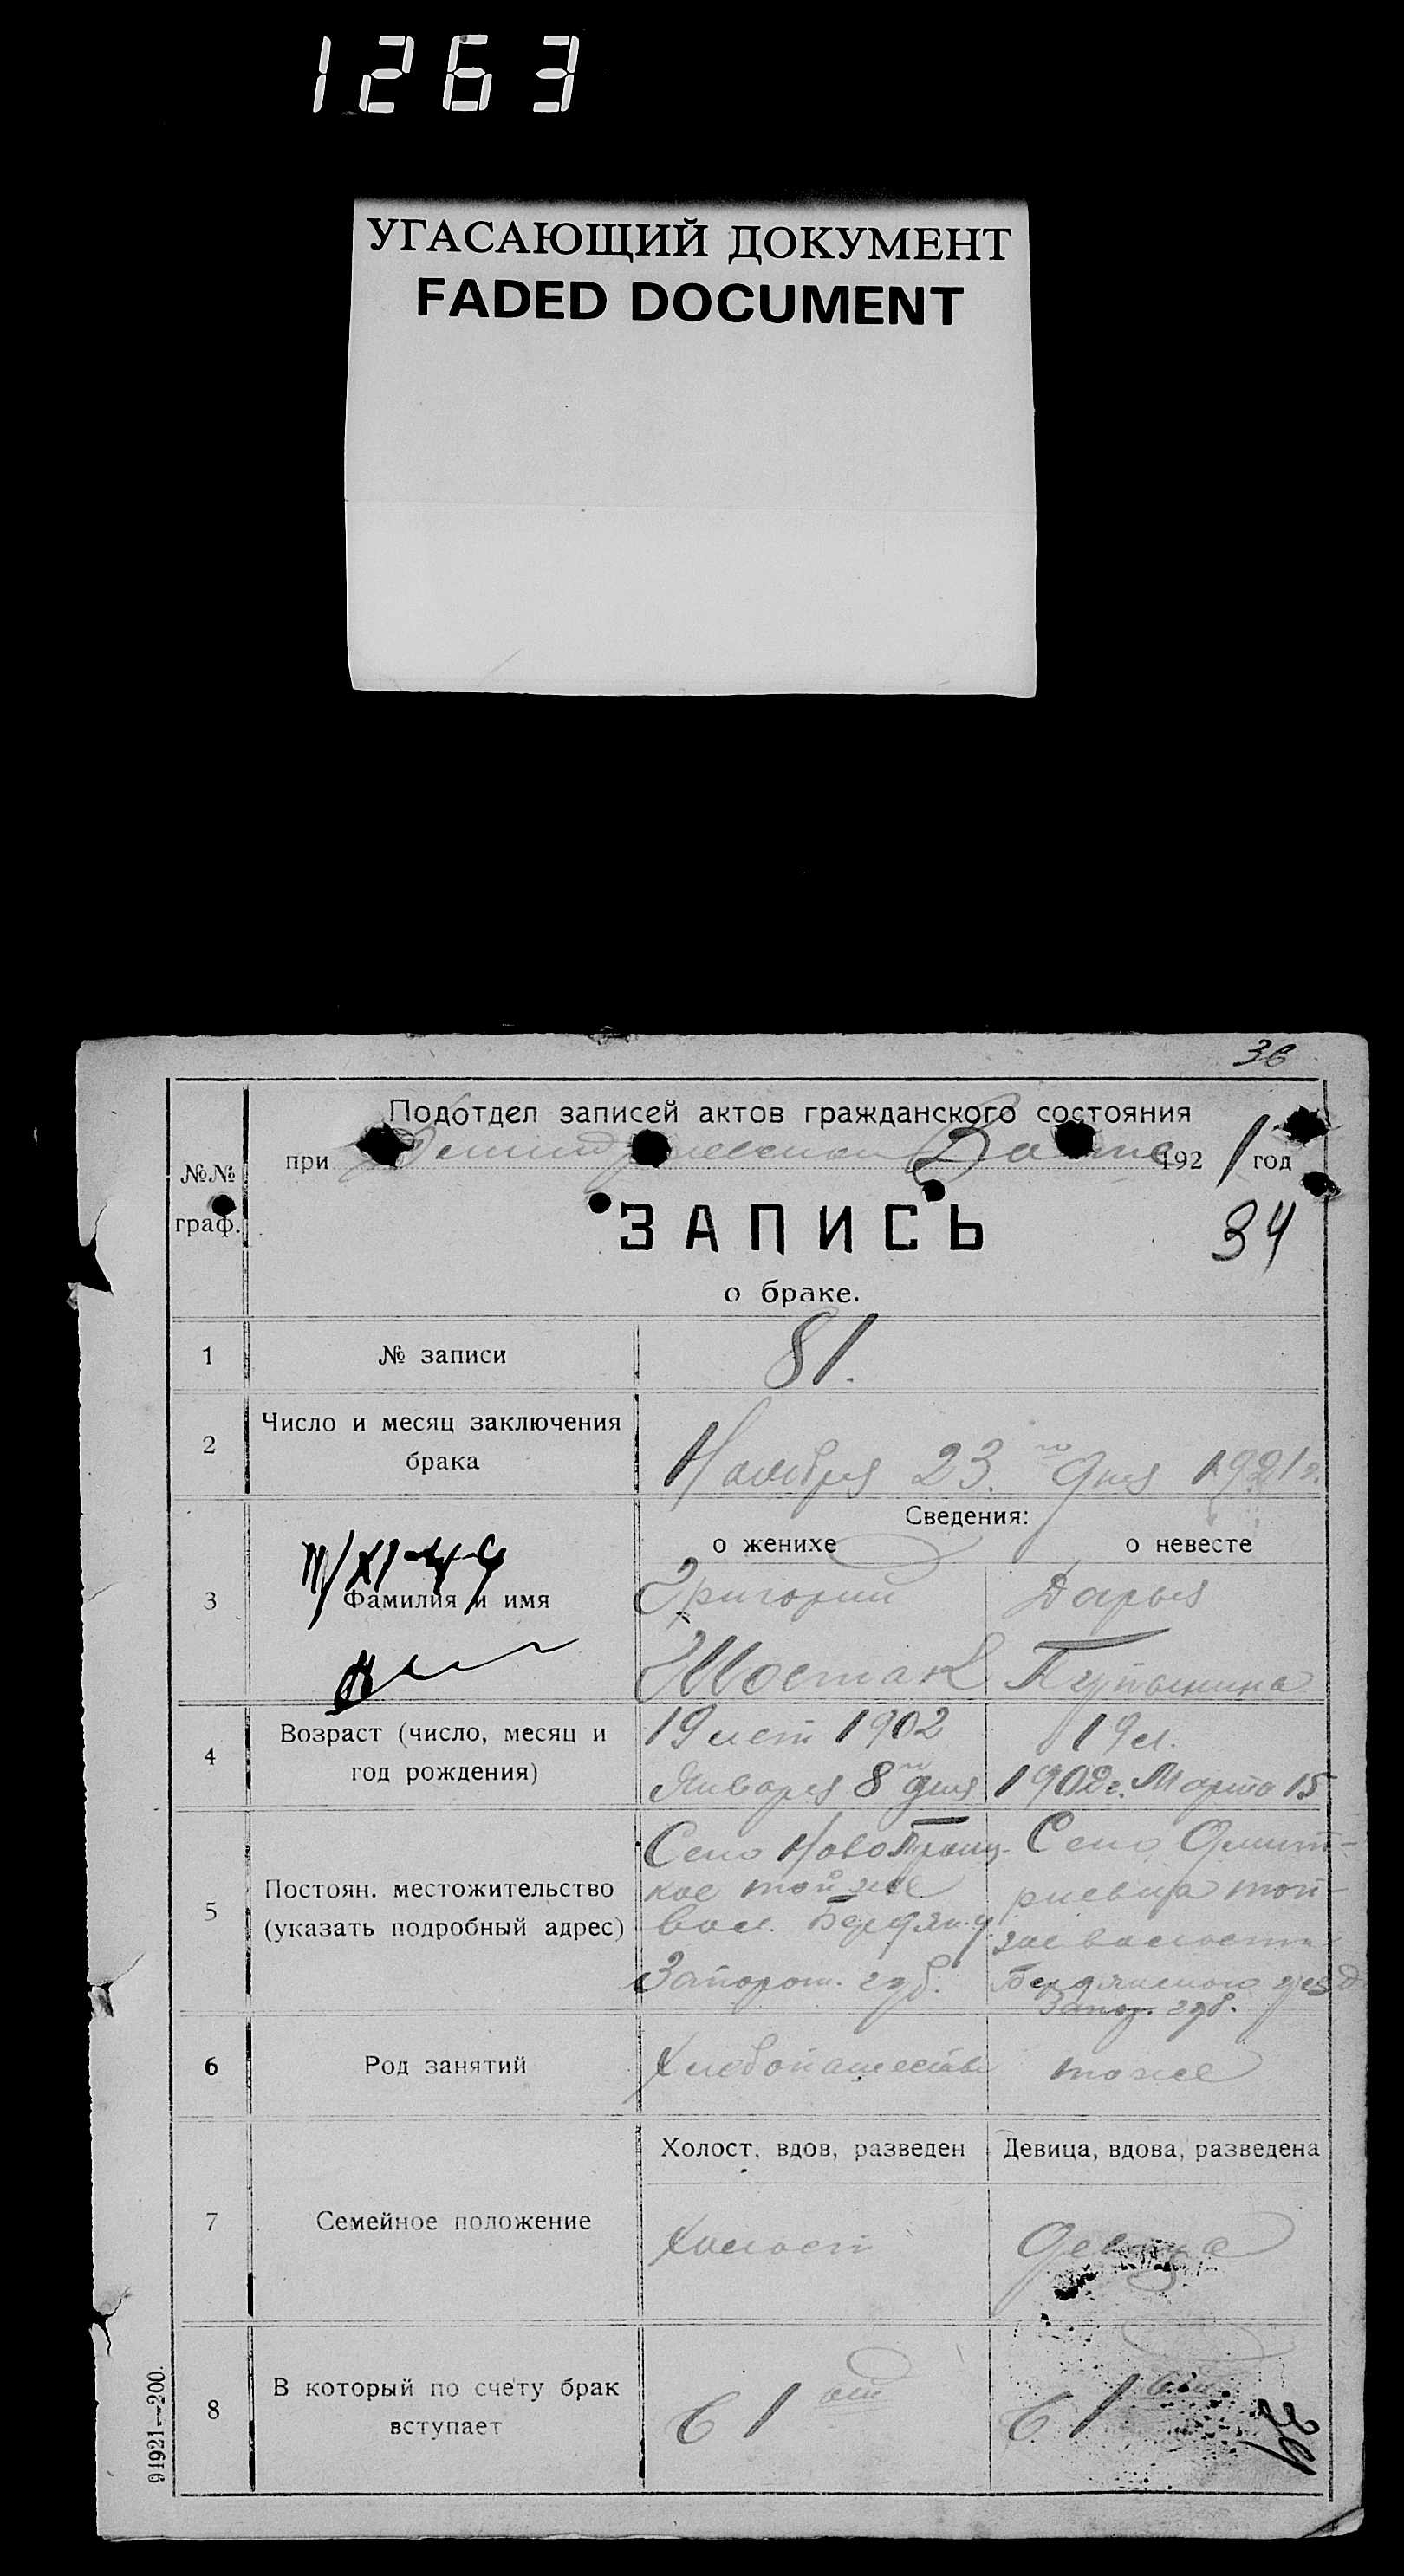 1263
УГАСАЮЩИЙ ДОКУМЕНТ
FADED DOCUMENT
36
Подотдел записей актов гражданского состояния
№№
граф.
при 1921 год
ЗАПИСЬ
34
о браке.
1 № записи 81.
2 Число и месяц заключения
брака
Ноября 23.го дня 1921 г.
Сведения:
о женихе о невесте
3 Фамилия и имя
Григорий Дарья
Шостак
4 Возраст (число, месяц и
год рождения)
19 лет 1902 19 л.
Января 8го дня 1902 г. Марта 15
5 Постоян. местожительство
(указать подробный адрес)
Село НовоТроиц- Село Дмит-
кое той же риевка той-
вол. Бердян. у же волости
Запорож. губ. Бердянского уезд
Запор. губ.
6 Род занятий
Хлебопашество тоже
Холост, вдов, разведен Девица, вдова, разведена
7 Семейное положение
Холост Девица
8 В который по счету брак
вступает
в 1 ый в 1 ый
34
91921—200.